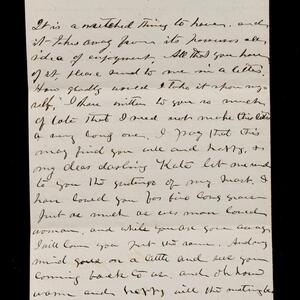 It is a wretched thing to have, and
it takes away from its possessor all
idea of enjoyment. All that you have
of it please send to me in a letter.
How gladly would I take it upon my-
self. I have written to you so much
of late that I need not make this letter
a very long one. I pray that this
may find you well and happy, so
my dear darling Kate let me send
to you the greetings of my heart. I
have loved you for two long years
just as much as ever man loved
woman, and while you are young
I will love you just the same.
mind on a letter and see you
coming back to us, and oh how
warm and happy will the meeting be